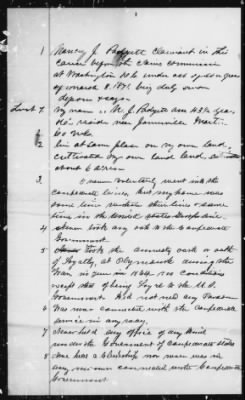 1 Nancy J. Padgett Claimant in this
cause before the claims commission
at Washington D.C. under act of congress
of march 3. 1871 being duly sworn
deposes & says.
My name is N. J. Padgett am 43½ years
old, reside near
Co
2 live at same place on my own land,
cultivated my own land,
about 6 acres
3 I never voluntarily went into the
confederate lines, but my home was
some time under their lines & some
time in the United States
4 Never took any oath to the Confederate
Government
5 took the amnesty oath or oath
of loyalty, at Plymouth during the
War in June in 1864. no conditions
except that of being loyal to the U.S.
Government. Did not need any Pardon
6 Was never connected with the Confederate
service in any way.
7 Never held any office of any kind
under the Government of Confederate States
8 was in
any connected with Confederate
Government